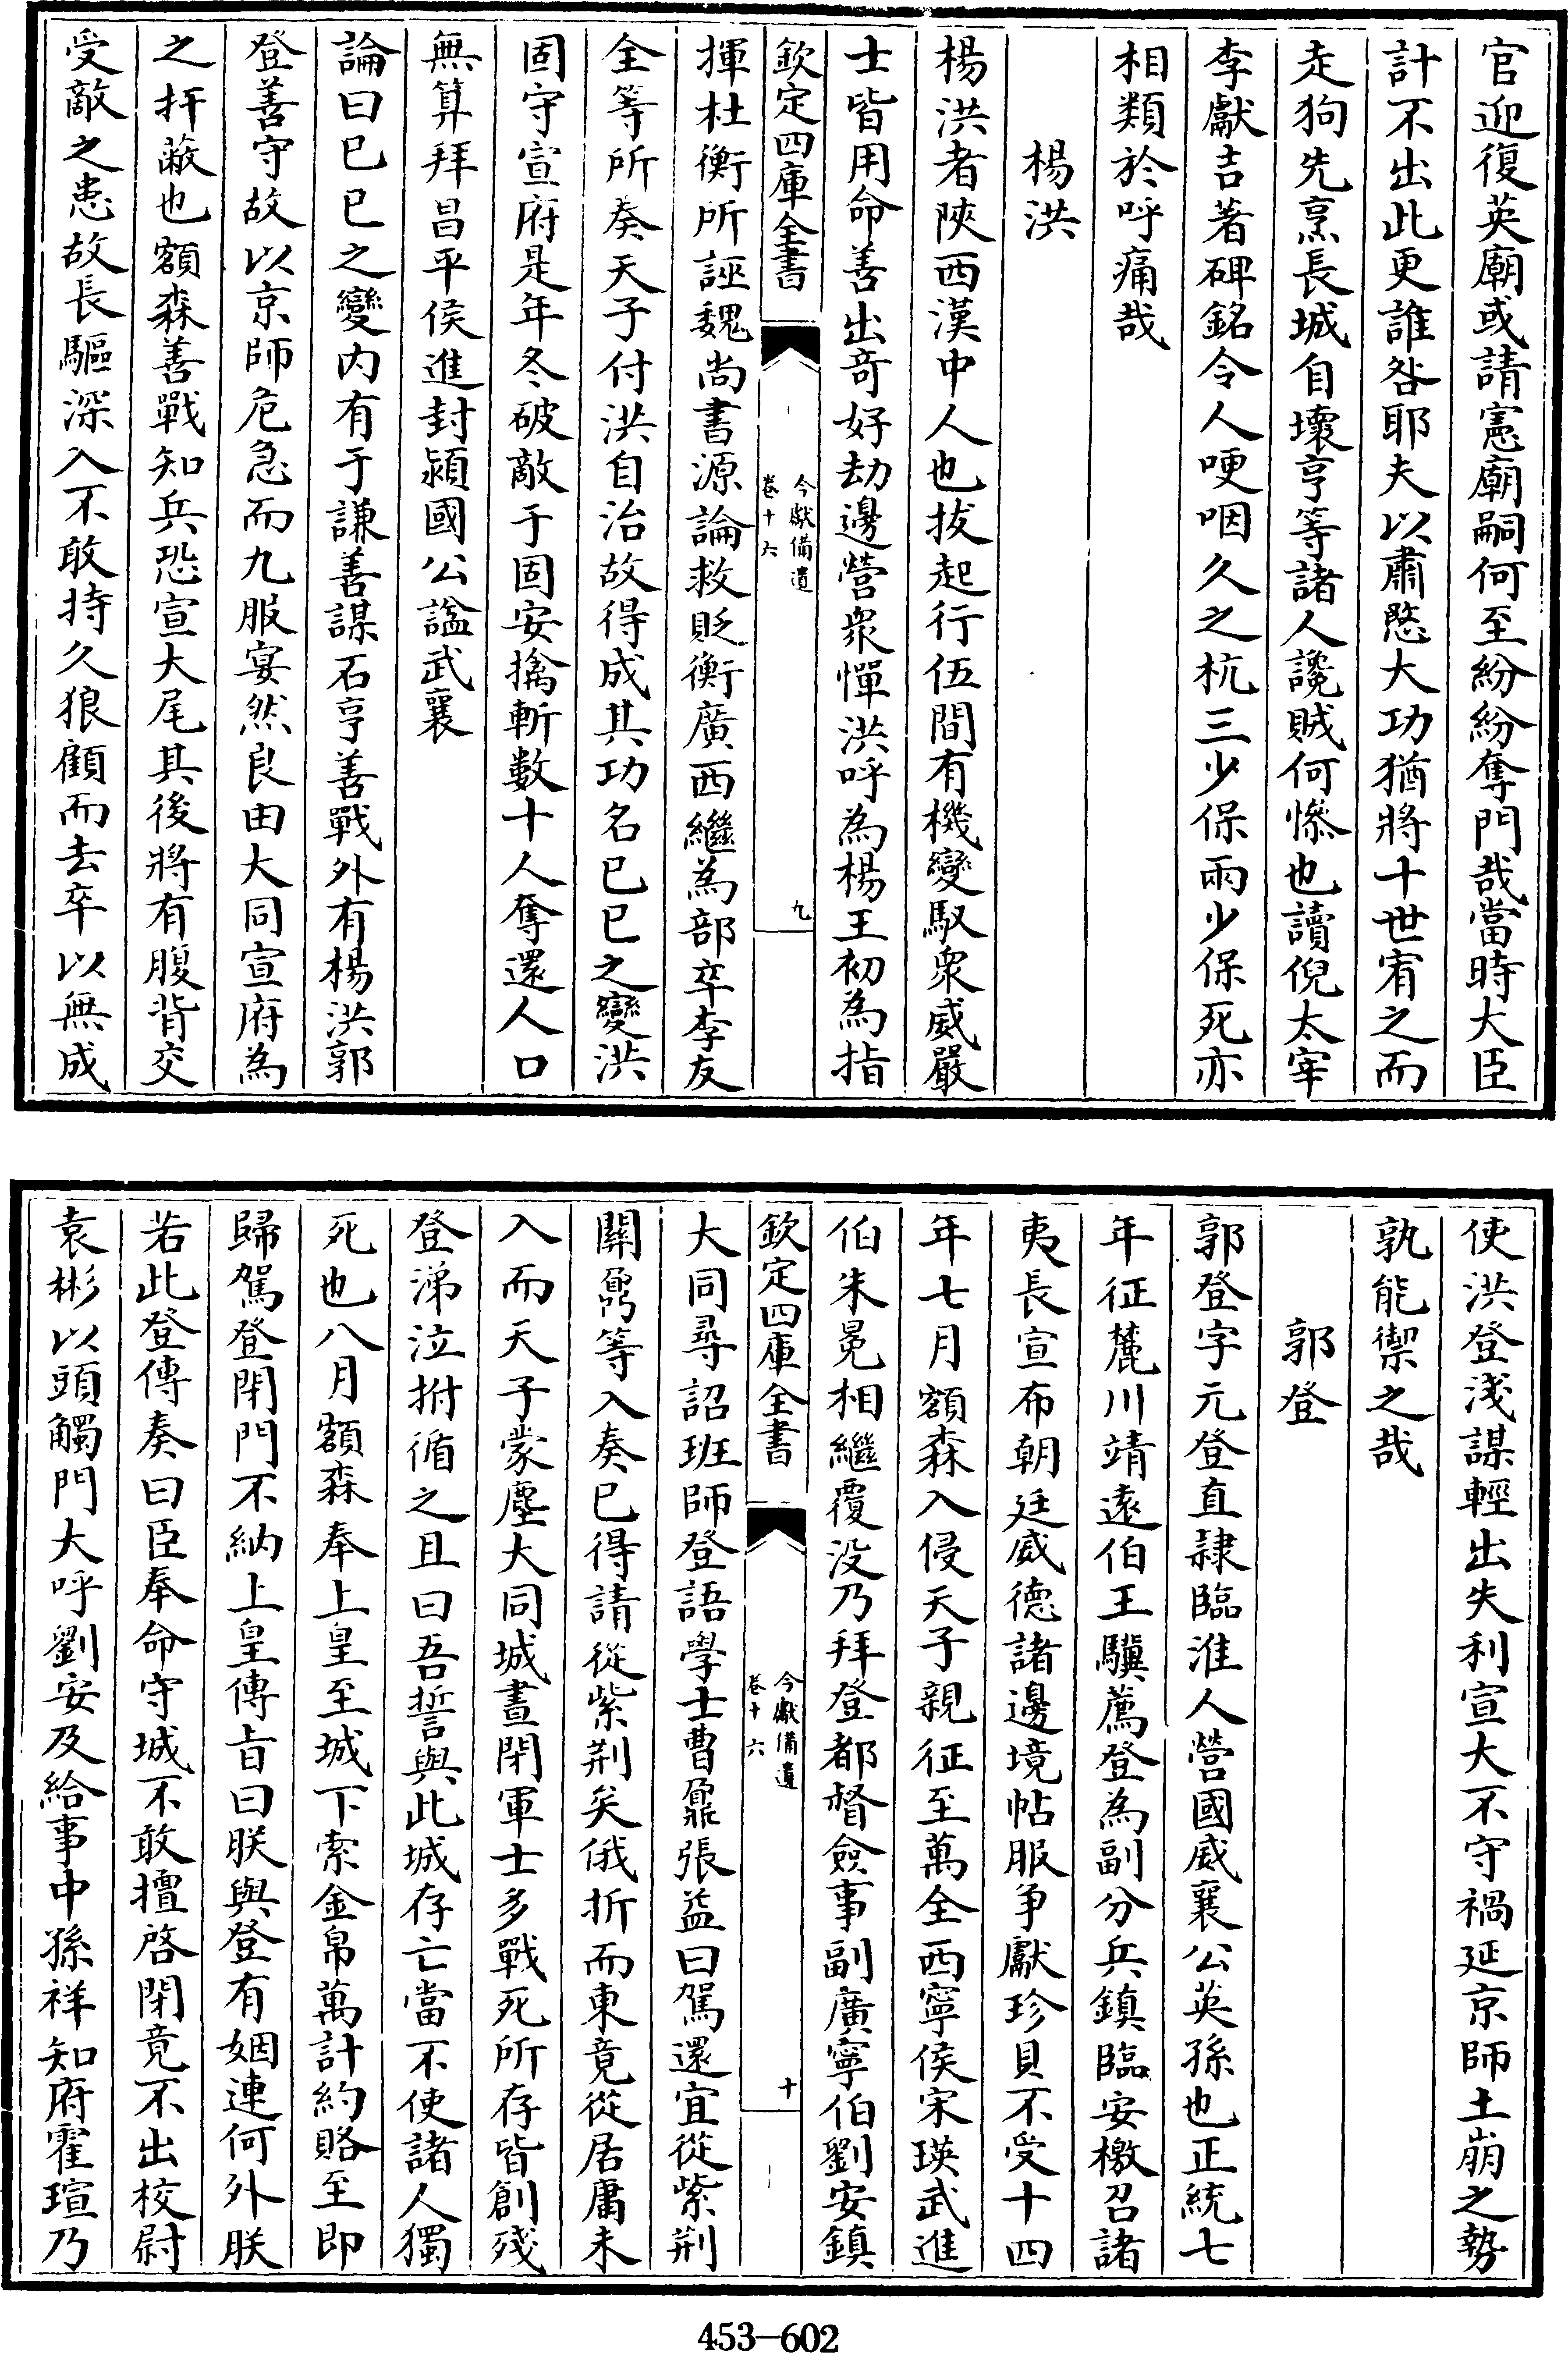 官迎復英廟或請憲廟嗣何至紛紛奪門哉當時大臣
計不出此更誰咎耶夫以肅愍大功猶將十世宥之而
走狗先烹長城自壞亨等諸人讒賊何慘也讀倪太宰
李獻吉著碑銘令人哽咽久之杭三少保兩少保死亦
相類於呼痛哉
楊洪
楊洪者陜西漢中人也拔起行伍間有機變馭衆威嚴
士皆用命善出奇好劫邊營衆憚洪呼為楊王初為指
欽定四庫全書
今獻備遺
卷十六
九
揮杜衡所誣魏尚書源論救貶衡廣西繼為部卒李友
全等所奏天子付洪自治故得成其功名已巳之變洪
固守宣府是年冬破敵于固安擒斬數十人奪還人口
無算拜昌平侯進封潁國公諡武襄
論曰已巳之變内有于謙善謀石亨善戰外有楊洪郭
登善守故以京師危急而九服宴然良由大同宣府為
之扞蔽也額森善戰知兵恐宣大尾其後將有腹背交
受敵之患故長驅深入不敢持久狼顧而去卒以無成
使洪登淺謀輕出失利宣大不守禍延京師土崩之勢
孰能禦之哉
郭登
郭登字元登直隸臨淮人營國威襄公英孫也正統七
年征麓川靖遠伯王驥薦登為副分兵鎮臨安檄召諸
夷長宣布朝廷威德諸邊境帖服爭獻珍貝不受十四
年七月額森入侵天子親征至萬全西寧侯宋瑛武進
伯朱冕相繼覆没乃拜登都督僉事副廣寧伯劉安鎮
欽定四庫全書
今獻備遺
卷十六
十
大同尋詔班師登語學士曹鼐張益曰駕還宜從紫荆
關鼐等入奏已得請從紫荆矣俄折而東竟從居庸未
入而天子蒙塵大同城晝閉軍士多戰死所存皆創殘
登涕泣拊循之且曰吾誓與此城存亡當不使諸人獨
死也八月額森奉上皇至城下索金帛萬計約賂至即
歸駕登閉門不納上皇傳旨曰朕與登有姻連何外朕
若此登傳奏曰臣奉命守城不敢擅啓閉竟不出校尉
袁彬以頭觸門大呼劉安及給事中孫祥知府霍瑄乃
453-602